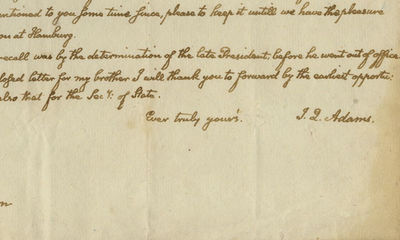 mentioned to you some time since, please to keep it untill we have the pleasure
you at Hamburg.
recall was by the determination of the late President, before he went out of office.
closed letter for my brother I will thank you to forward by the earliest opportu:
also that for the Secy: of State.
Ever truly your's.  J. Q. Adams.